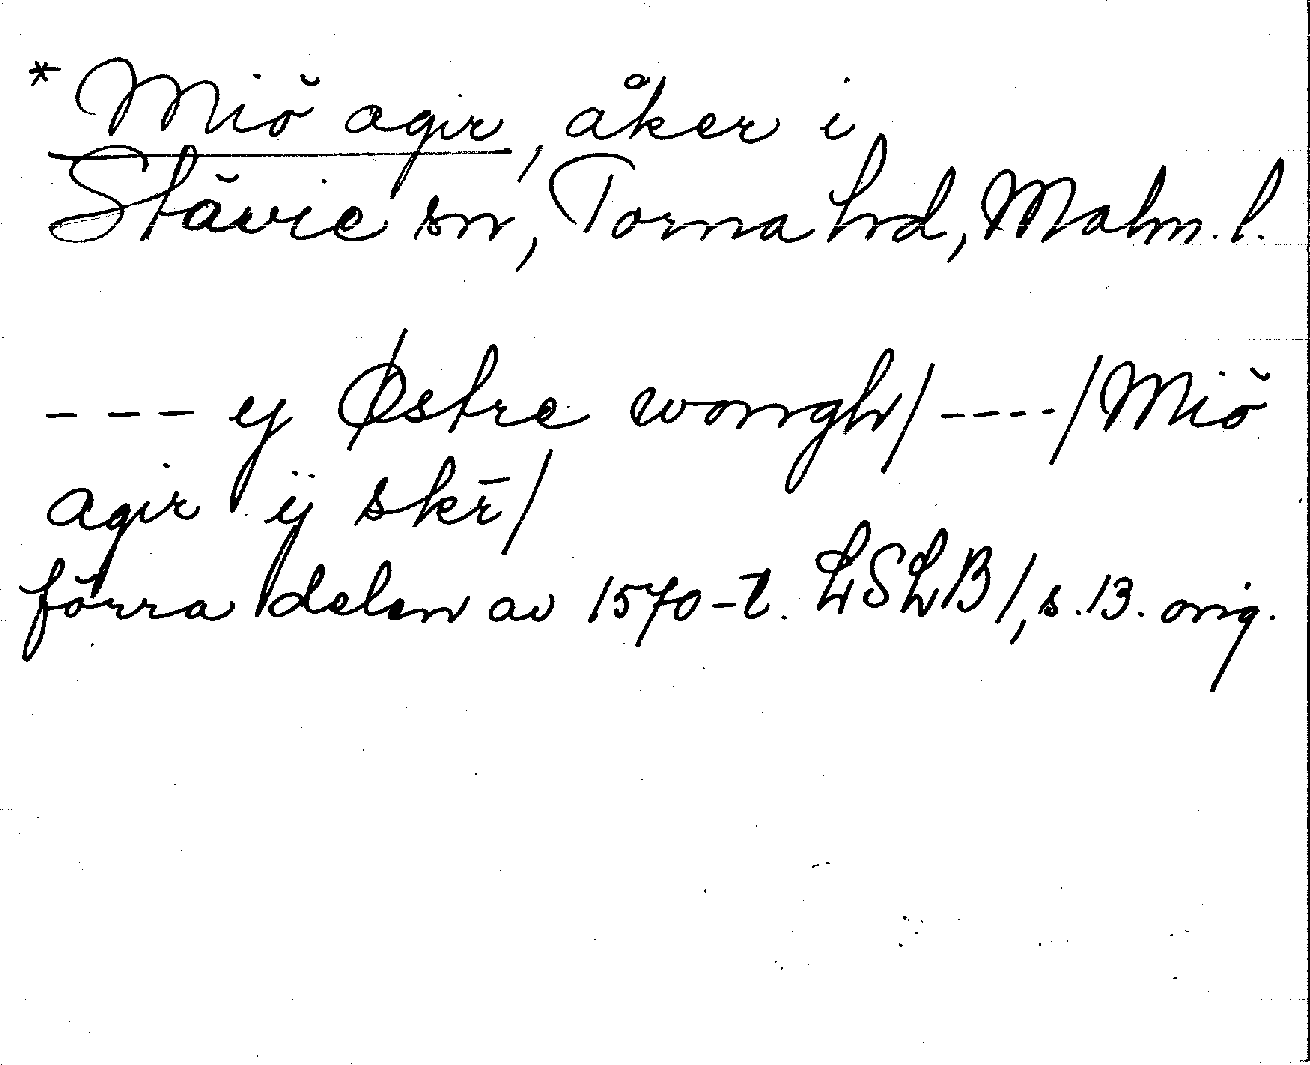 * Miŏ agir, åker i
Stävie sn, Torna hd, Malm. l.
--- ej Østre wongh/----/Miŏ
agir ÿ skr̄/
förra delen av 1570-t. LSLB/, s. 13. orig.